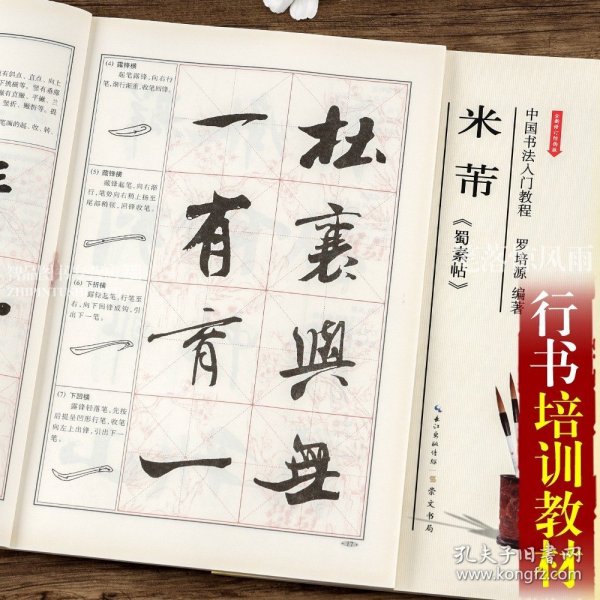 (4) 露锋横
起笔露锋，向右行
笔，渐行渐重，收笔回锋。
(5) 藏锋横
藏锋起笔，向右缓
行，笔势向右稍上扬至
尾部稍驻，回锋收笔。
(6) 下折横
露锋起笔，行笔至
右，向下回锋成钩，引
出下一笔。
(7) 下凹横
露锋轻落笔，先按
后提呈凹形行笔，收笔
向左上出锋，引出下一
笔。
一 杜
有 襄
育 與
一 無
中国书法入门教程
米芾
《蜀素帖》
罗培源 编著
长江出版传媒
崇文书局
行书培训教材
孔夫子旧书网
www.kongfz.com